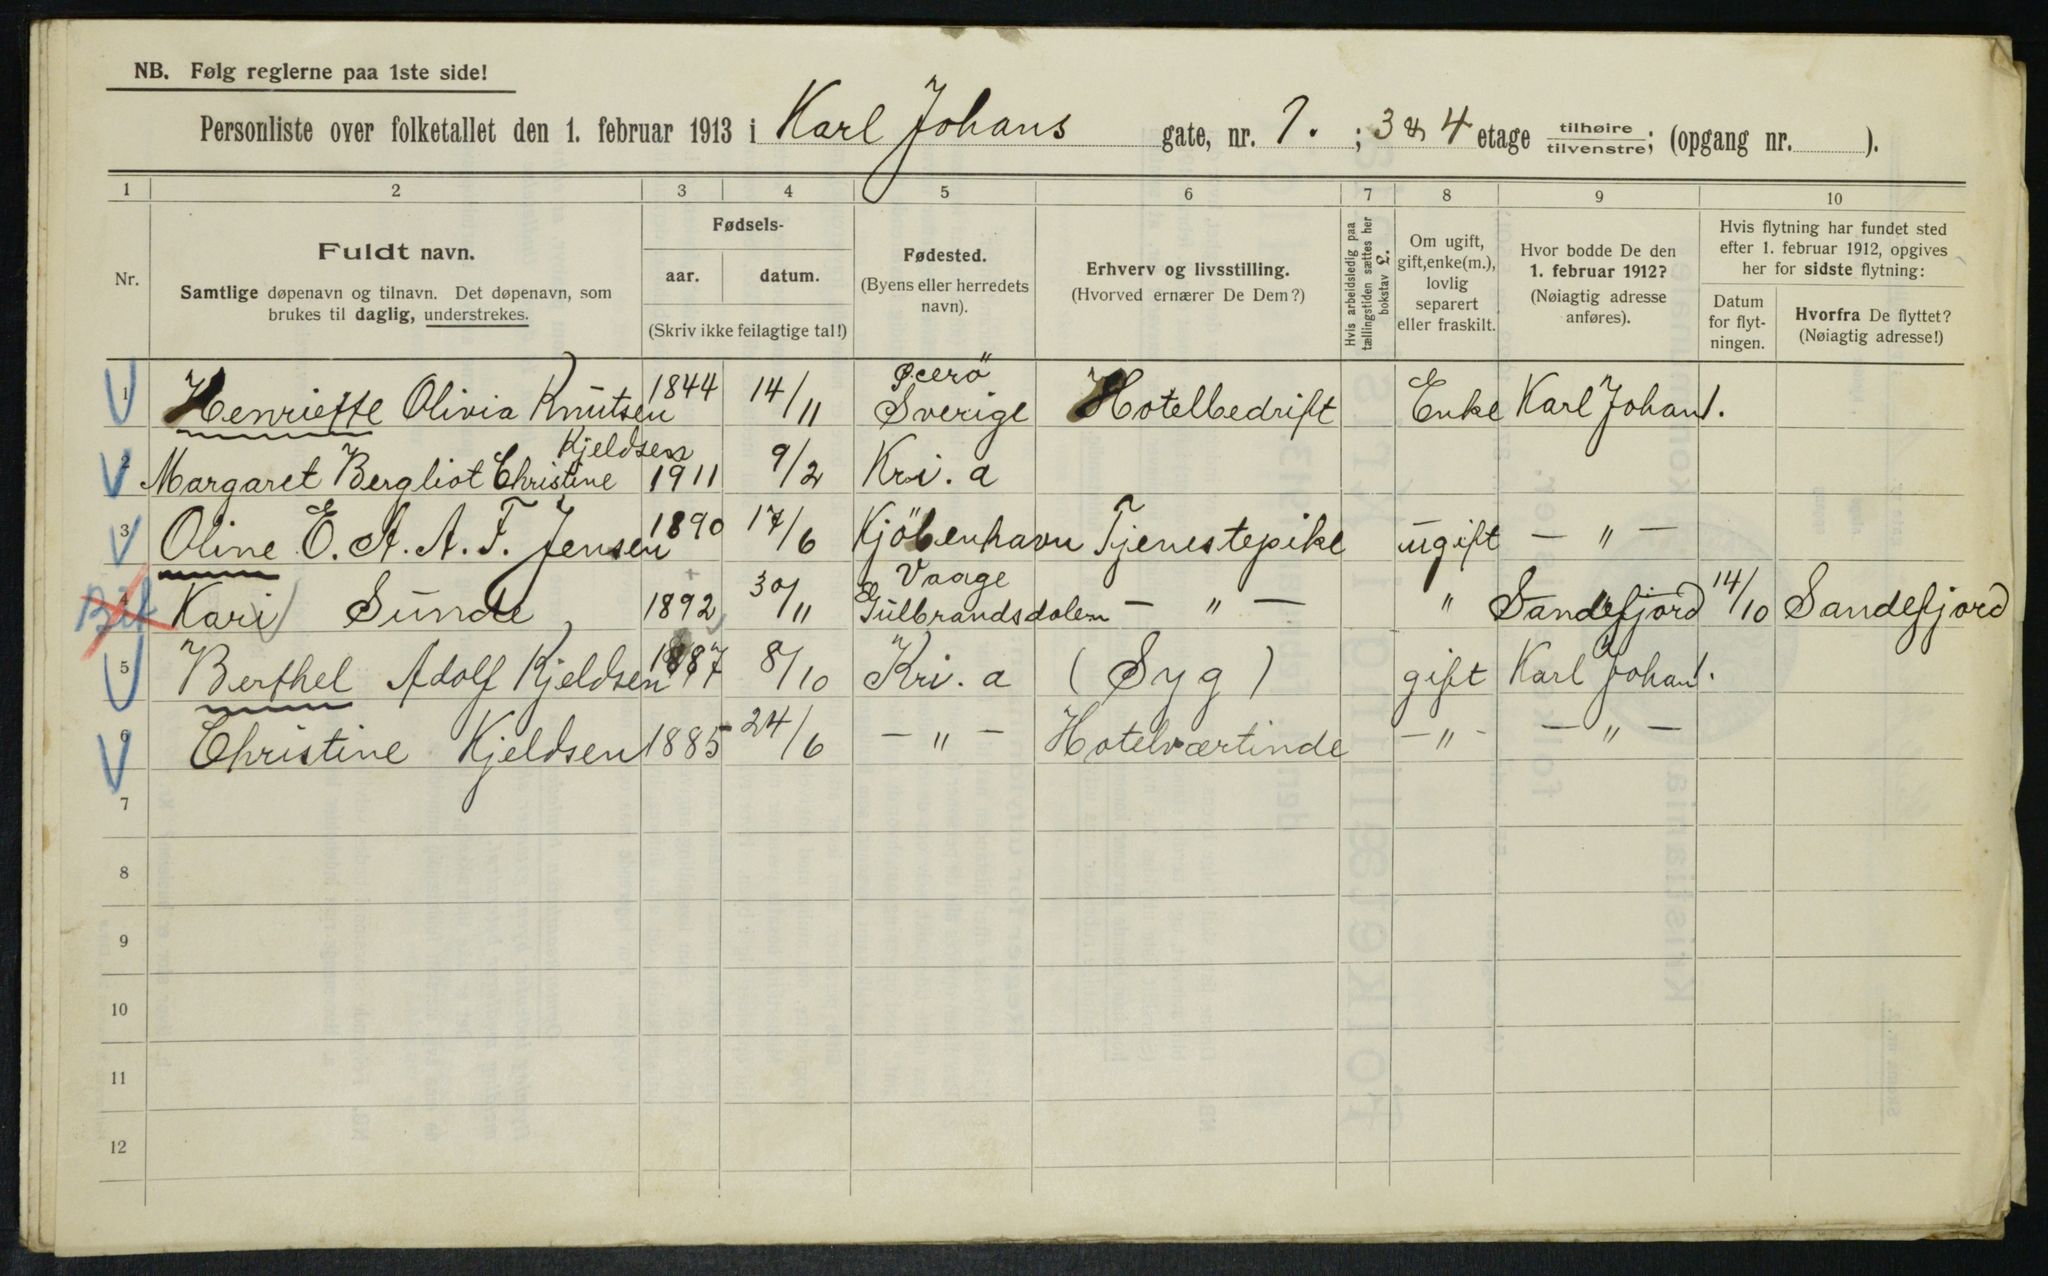 NB. Følg reglerne paa 1ste side!
Personliste over folketallet den 1. februar 1913 i Karl Johans gate, nr. 1. ; 3 & 4 etage tilhøire tilvenstre; (opgang nr. ).
1 2 3 4 5 6 7 8 9 10
Nr.
Fuldt navn.
Samtlige døpenavn og tilnavn. Det døpenavn, som
brukes til daglig, understrekes.
Fødsels-
aar. datum.
(Skriv ikke feilagtige tal!)
Fødested.
(Byens eller herredets
navn).
Erhverv og livsstilling.
(Hvorved ernærer De Dem?)
Hvis arbeidsledig paa
tællingstiden sættes her
bokstav L.
Om ugift,
gift, enke(m.),
lovlig
separert
eller fraskilt.
Hvor bodde De den
1. februar 1912?
(Nøiagtig adresse
anføres).
Hvis flytning har fundet sted
efter 1. februar 1912, opgives
her for sidste flytning:
Datum
for flyt-
ningen.
Hvorfra De flyttet?
(Nøiagtig adresse!)
1 Henriette Olivia Knutsen 1844 14/11 Sverige Hotelbedrift Enke Karl Johan 1.
Kjeldsen
2 Margaret Bergliot Christine 1911 9/2 Kri.a
3 Oline E. A. A. F. Jensen 1890 17/6 Kjöbenhavn Tjenestepike ugift — " —
Vaage
4 Kari Sunde 1892 30/11 Gulbrandsdalen — " — " Sandefjord 14/10 Sandefjord
5 Berthel Adolf Kjeldsen 1887 8/10 Kri.a (Syg) gift Karl Johan 1.
6 Christine Kjeldsen 1885 24/6 — " — Hotelværtinde — " — — " —
7
8
9
10
11
12